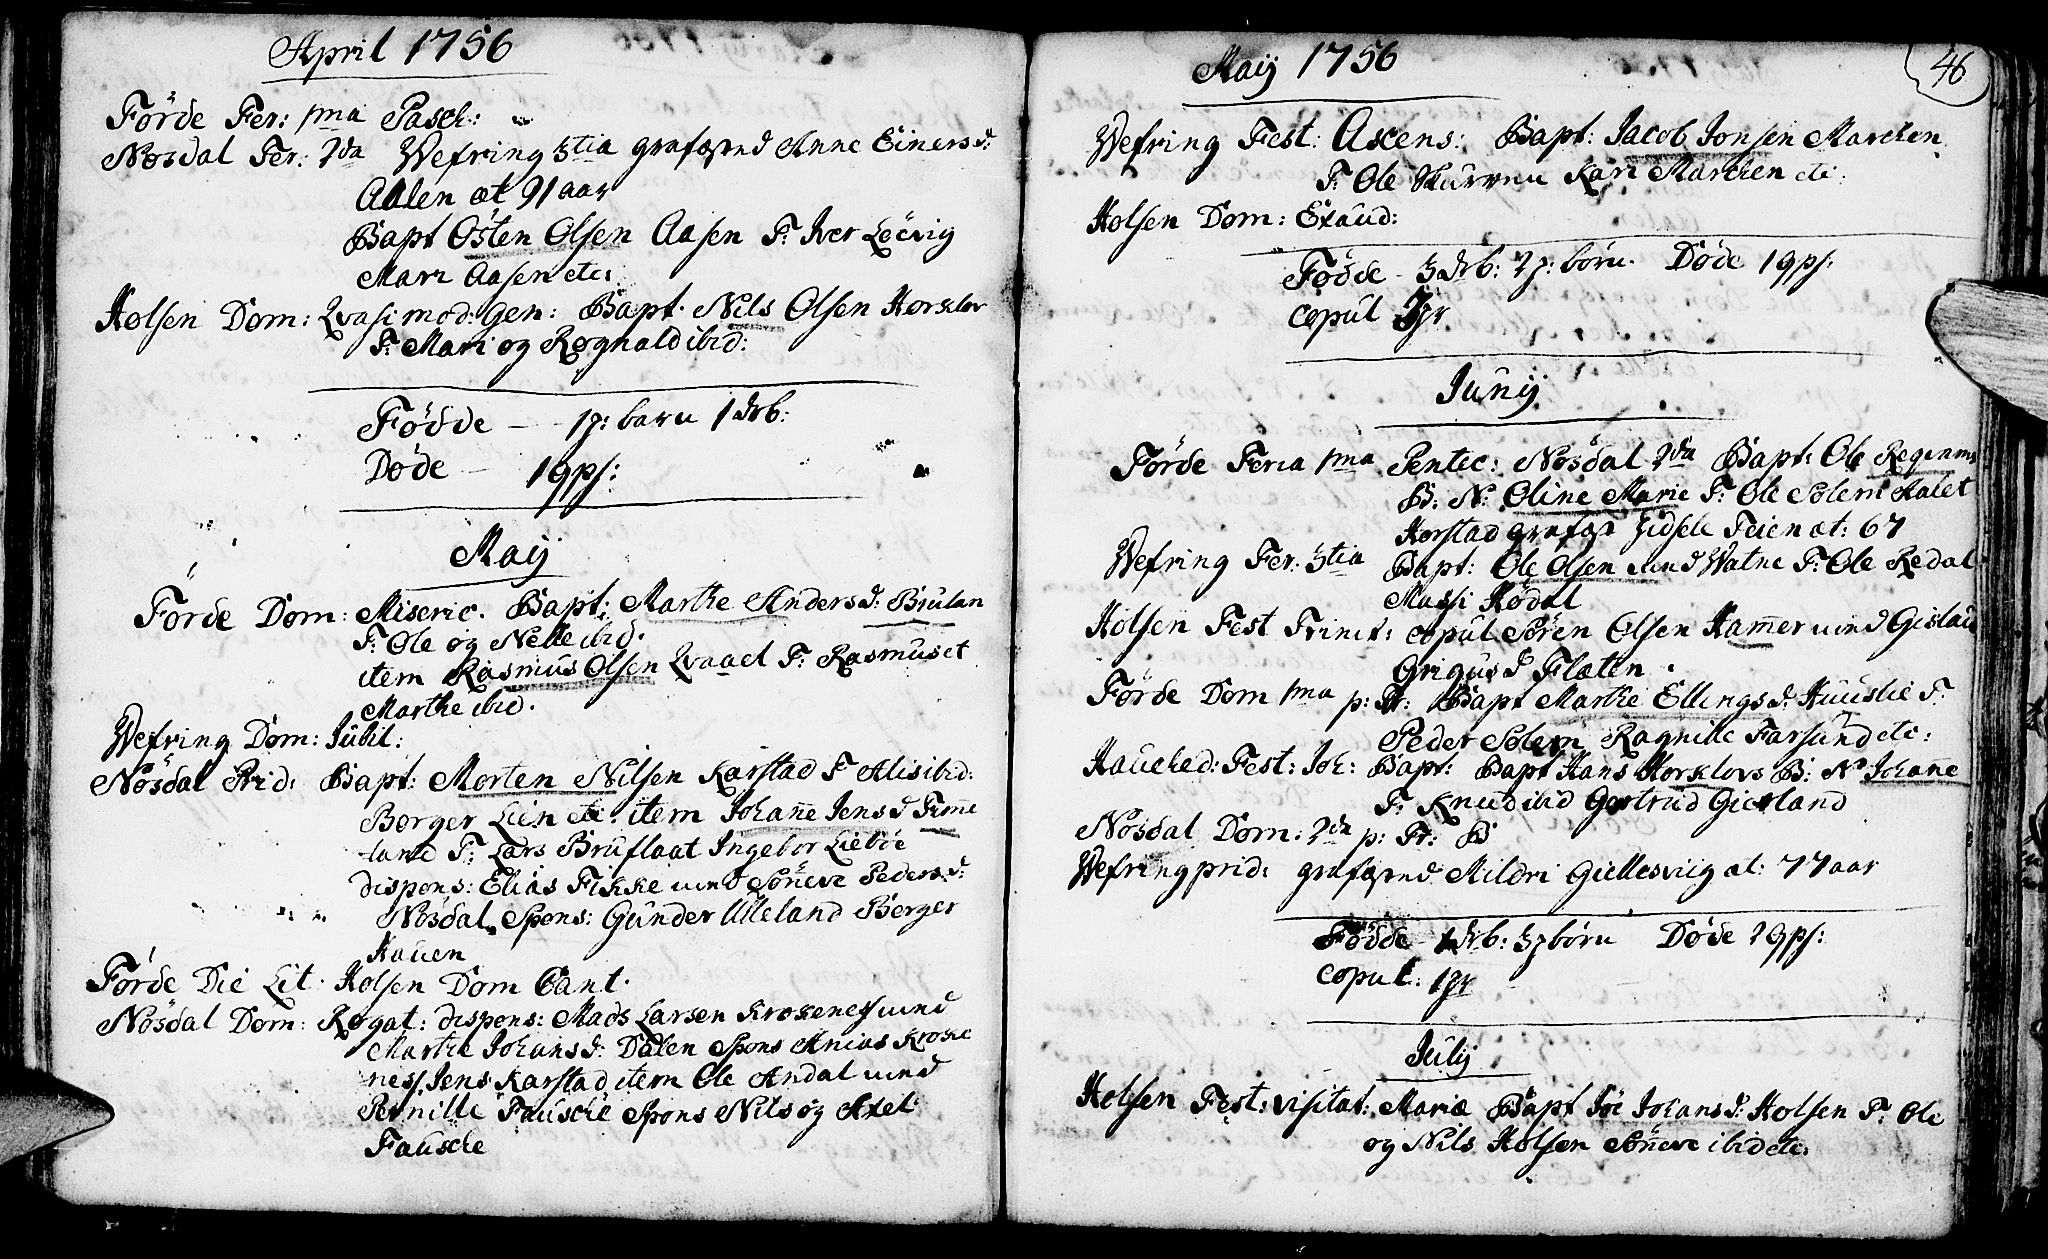 April 1756
Förde Fer: 1ma Pasch:
Nøsdal Fer: 2da Wefring 3tia grafæstnd Anne Einersd:
Aalen æt 91 aar
Bapt Östen Olsen Aasen F: Iver Löevig
Mari Aasen etc:
Holsen Dom: Qvasimod: Gen: Bapt. Nils Olsen Horsklov
F. Mari og Rognald ibid:
Födde — 1 p: barn 1 drb:
Døde — 1 qps:
Maij
Förde Dom: Miseric. Bapt: Marthe Andersd: Brulan
F: Ole og Nelle ibid.
item Rasmus Olsen Qvaael F: Rasmus et
Marthe ibid.
Wefring Dom: Jubil:
Nøsdal Prid: Bapt: Morten Nilsen Karstad F Alis ibid:
Børger Lien etc: item Johanne Jensd Time
land F: Lars Bruflaat Ingebor Liebøe
dispons: Elias Fikke und Söneve Peders:d:
Nøsdal. Spons: Gunder Ulleland Børger
Hauen
Förde Die Lit: Holsen Dom Cant.
Nøsdal Dom: Rogat: dispons: Mads Larsen Krokenes und
Marthe Johansd: Dalen Spons Anias Kroke
nes/ Jens Karstad item Ole Andal und
Pernille Fausche Spons Nils og Axel
Fausche
Maij 1756
46
Wefring Fest: Ascens: Bapt: Jacob Jonsen Marchen
F: Ole Skurven Kari Marchen etc:
Holsen Dom: Exaud:
Födde - 3 drb: 2 p: börn. Døde 1 qps:
copul 2 pr
Junij
Förde Feria 1ma Pentec: Nøsdal 2da Bapt: Ole
B: N: Oline Marie F: Ole Solem Malet
Horstad grafæst Zidsele Feien æt: 67
Wefring Fer: 3tia Bapt: Ole Olsen und Watne F: Ole Redal
Massi Hødal
Holsen Fest Trinit: copul Sören Olsen Hamer und Gislau
Grigusd Flaten.
Förde Dom 1ma p: Tr: Bapt Marthe Ellingsd: Huuslie F
Peder Solem Ragnille Farsund etc:
Hauehed: Fest: Joh: Bapt: Bapt Hans Horklovs B: N: Johane
F: Knud ibid Gertrud Gierland
Nøsdal Dom: 2da p: Tr: B
Wefring prid: grafæstnd Mildri Giellesviig æt: 77 aar
Födde - 1 drb: 3 p børn Døde 2 qps:
copul: 1 pr
Julij
Holsen Fest: visitat: Mariæ Bapt Joe Johansd: Holsen F: Ole
og Nils Holsen Söneve ibid etc: